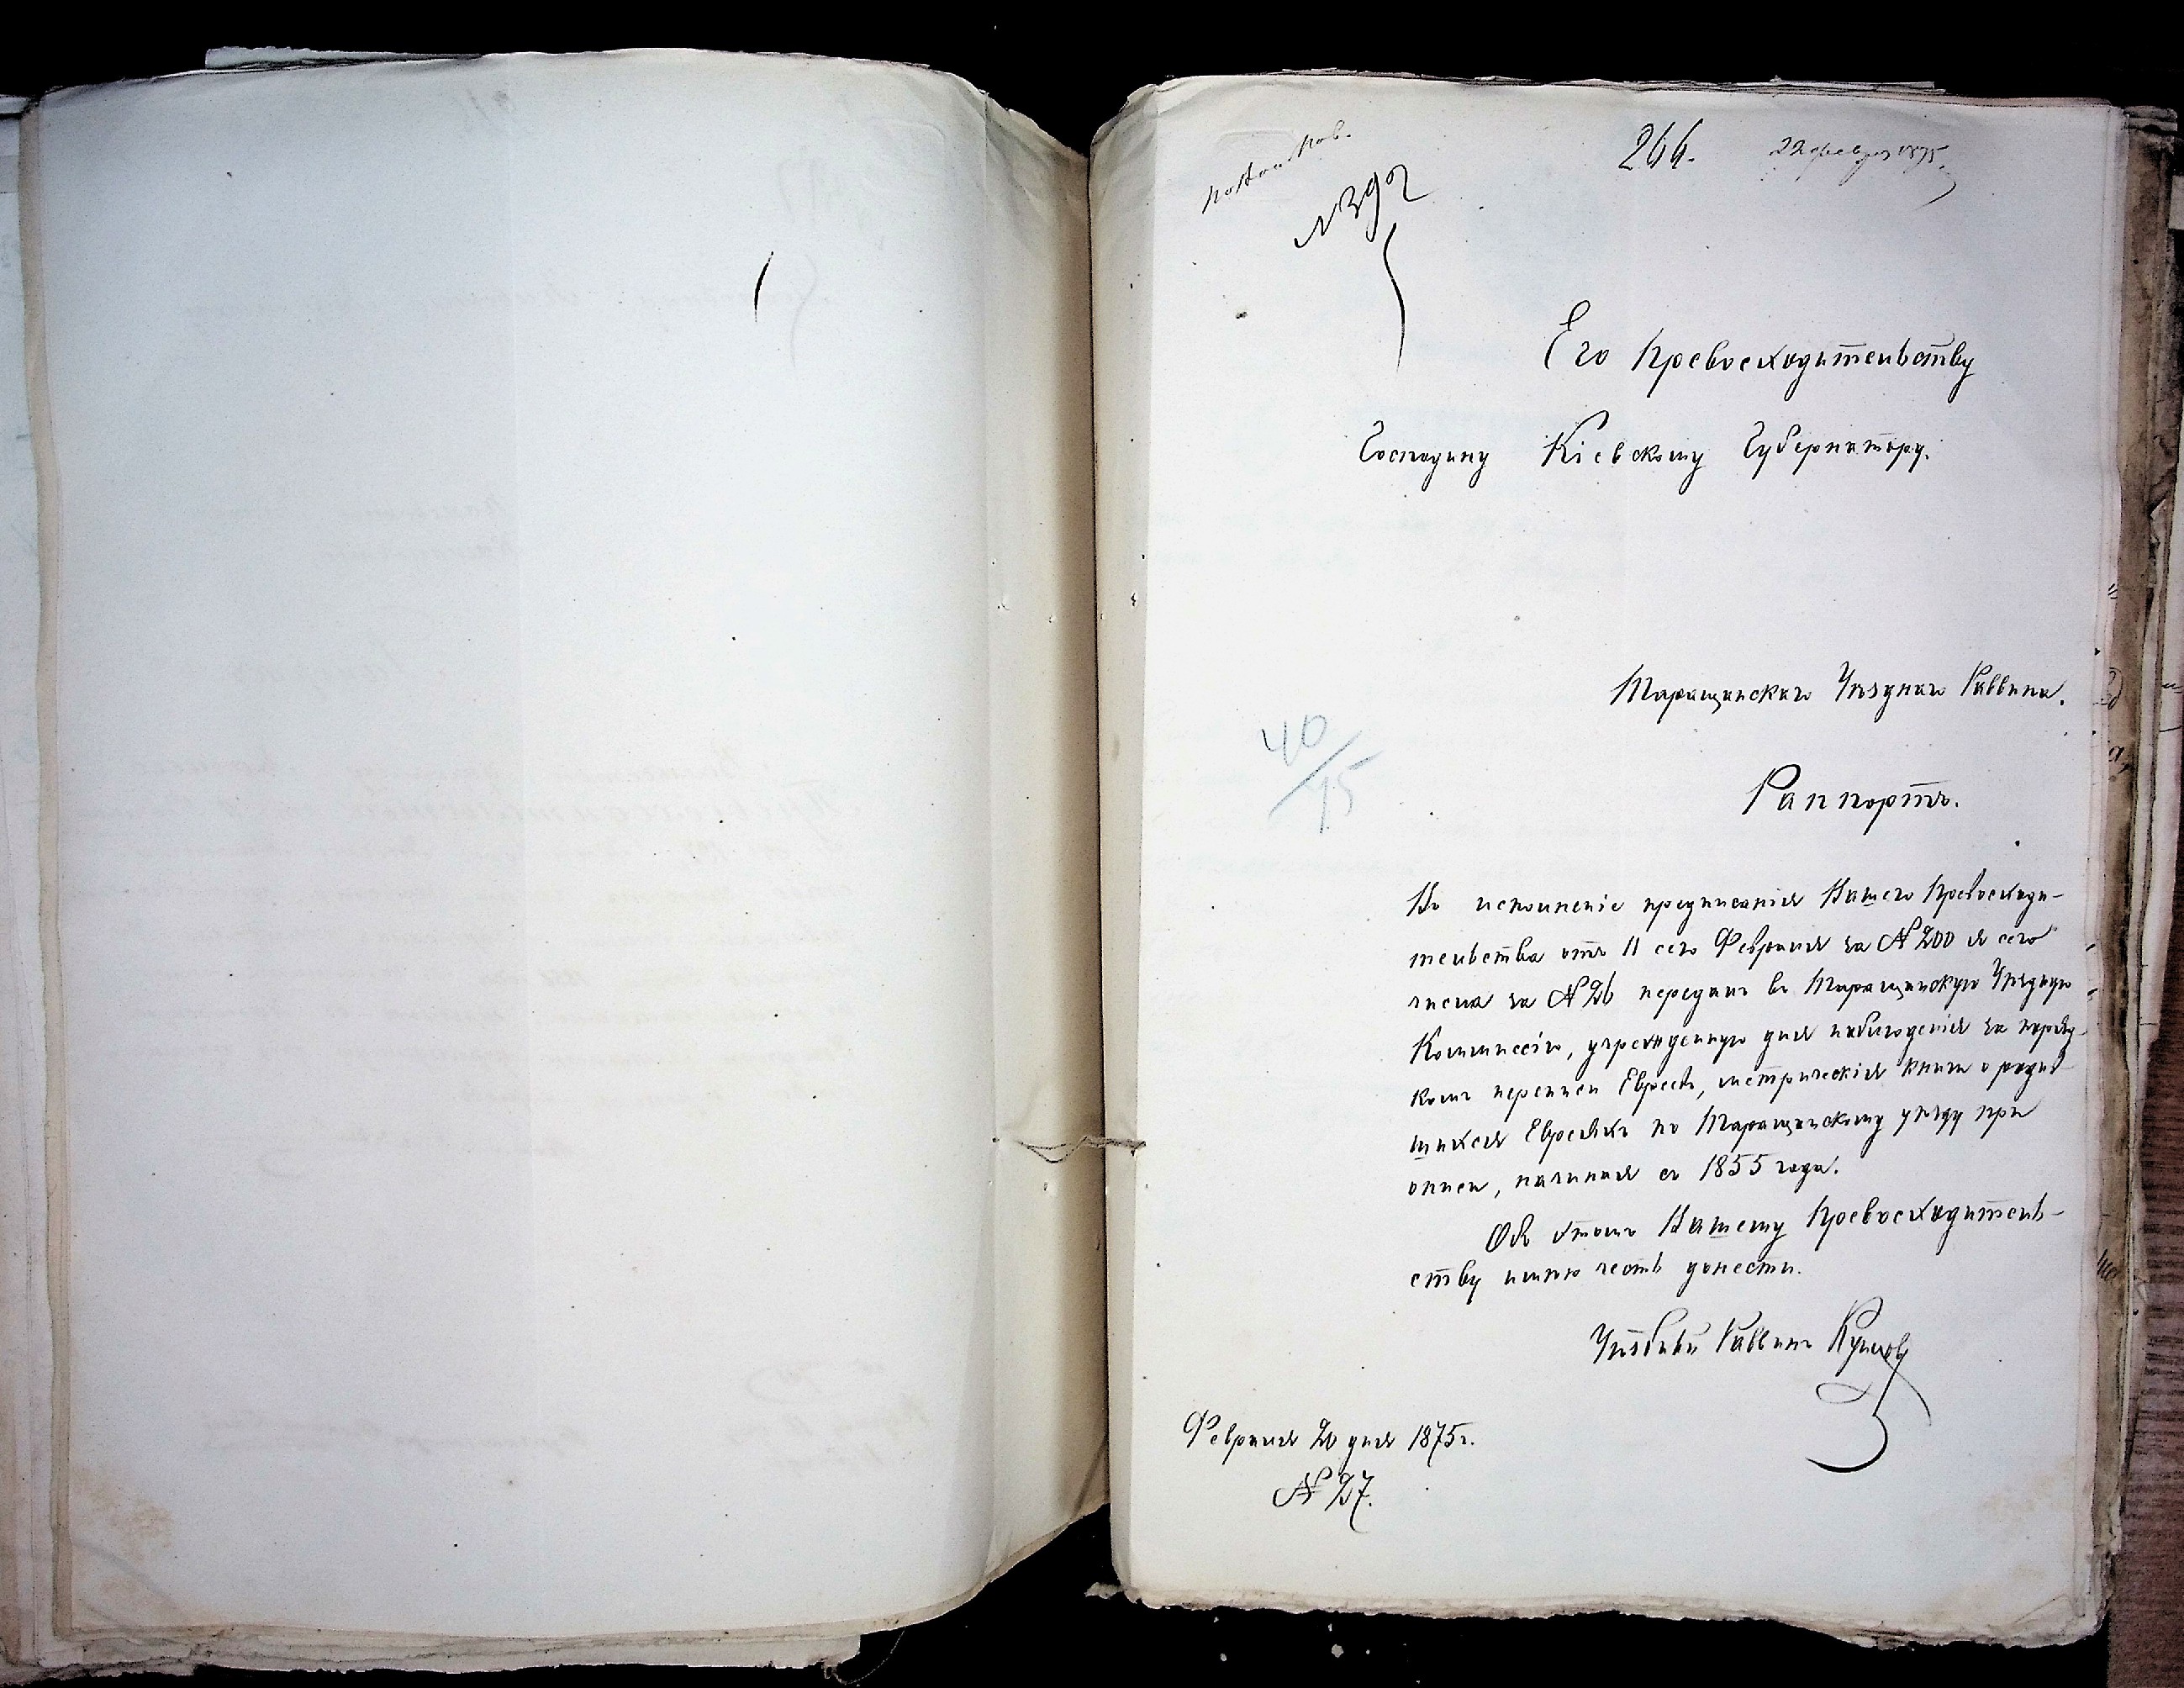 266.
22 февр 1875.
№ 392
Его Превосходительству
Господину Кіевскому Губернатору.
Таращанскаго Уѣзднаго Раввина.
40/75
Раппортъ.
Во исполненіе предписанія Вашего Превосходи-
тельства отъ 11 сего Февраля за № 200 я сего
числа за № 26 передалъ въ Таращанскую Уѣздную
Коммиссію, учрежденную для наблюденія за поряд-
комъ переписи Евреевъ, метрическія книги о родив-
шихся Евреяхъ по Таращанскому уѣзду при
описи, начиная съ 1855 года.
Объ этомъ Вашему Превосходитель-
ству имѣю честь донести.
Уѣздный Раввинъ
Февраля 20 дня 1875 г.
№ 27.